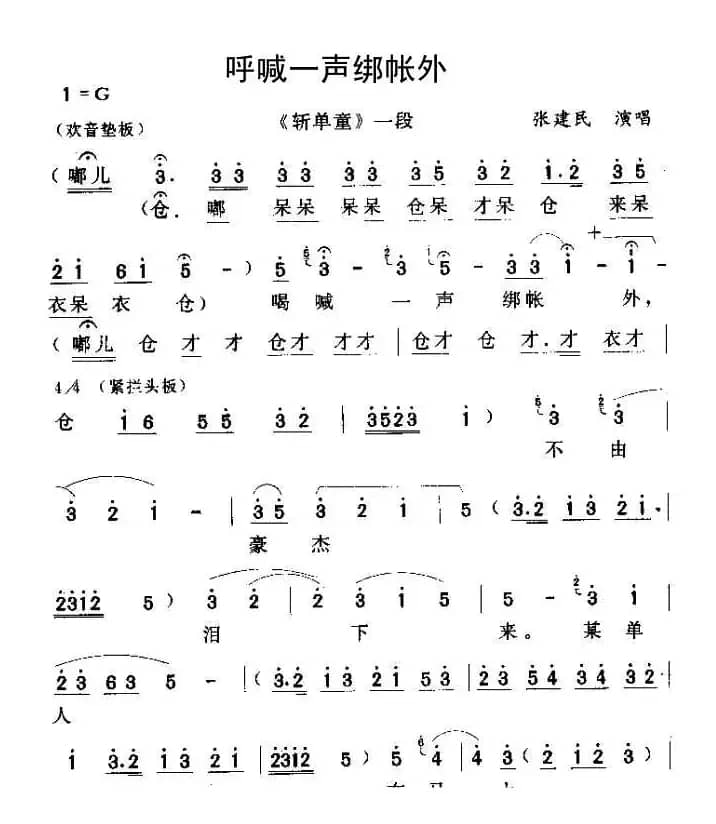 呼喊一声绑帐外
1=G
(欢音垫板) 《斩单童》一段 张建民 演唱
(嘟儿 3. 3 3 3 3 3 3 3 5 2 2 1.2 3 5
(仓. 嘟 呆呆 呆呆 仓呆 才呆 仓 来呆
2 1 6 1 5 - ) 5 3 - 3 5 - 3 3 1 - 1 -
衣呆 衣 仓) 喝喊 一 声 绑帐 外,
(嘟儿 仓 才 才 仓才 才才 | 仓才 仓 才.才 衣才 |
4/4 (紧拦头板)
仓 1 6 5 5 3 2 | 3523 1 ) 3 3
不 由
3 2 1 - | 3 5 3 2 1 | 5 ( 3.2 1 3 2 1.
豪 杰
2312 5 ) 3 2 | 2 3 1 5 | 5 - 3 1
泪 下 来。 某 单
2 3 6 3 5 - | ( 3.2 1 3 2 1 5 3 | 2 3 5 4 3 4 3 2
人
1 3.2 1 3 2 1 | 2312 5 ) 5 4 | 4 3 ( 2 1 2 3 )